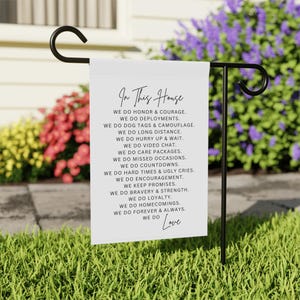 In This House
WE DO HONOR & COURAGE.
WE DO DEPLOYMENTS.
WE DO DOG TAGS & CAMOUFLAGE.
WE DO LONG DISTANCE.
WE DO HURRY UP & WAIT.
WE DO VIDEO CHAT.
WE DO CARE PACKAGES.
WE DO MISSED OCCASIONS.
WE DO COUNTDOWNS.
WE DO HARD TIMES & UGLY CRIES.
WE DO ENCOURAGEMENT.
WE KEEP PROMISES.
WE DO BRAVERY & STRENGTH.
WE DO LOYALTY.
WE DO HOMECOMINGS.
WE DO FOREVER & ALWAYS.
WE DO
Love